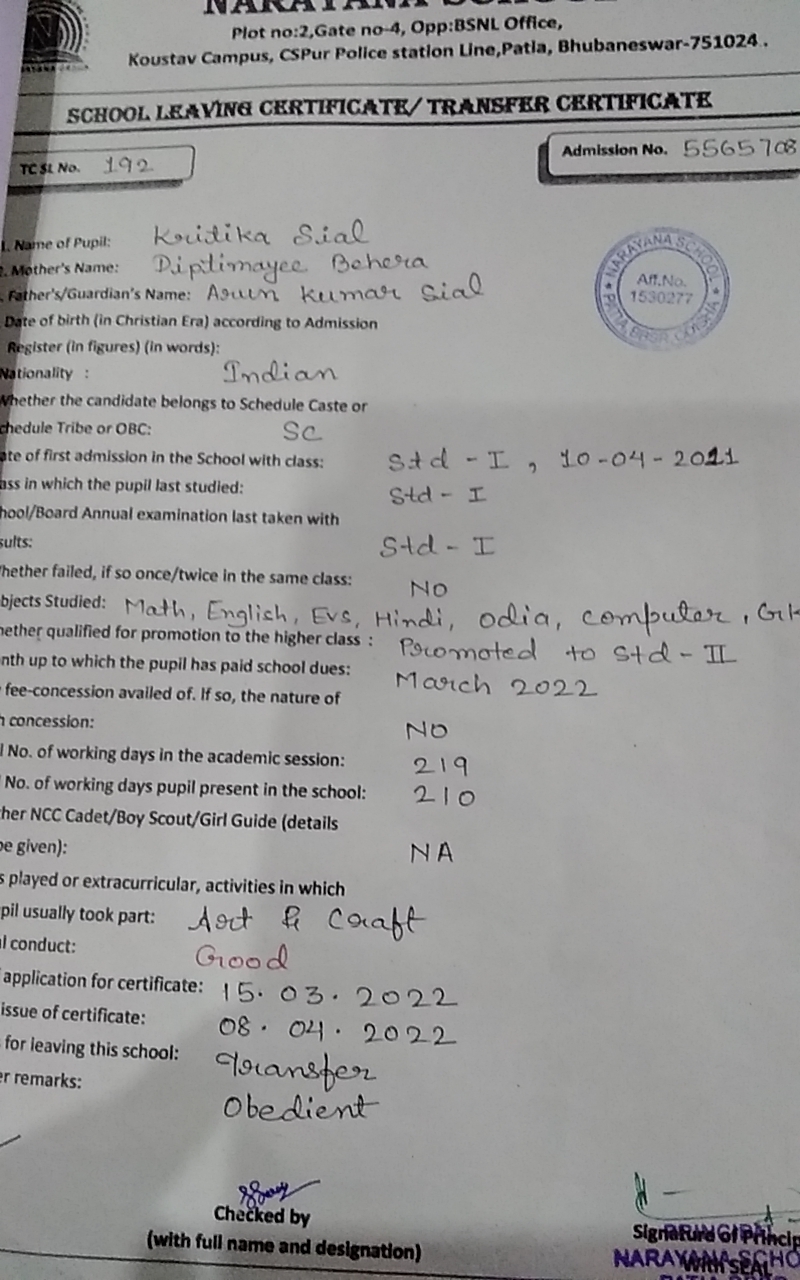 NARAYANA SCHOOL
Plot no:2,Gate no-4, Opp:BSNL Office,
Koustav Campus, CSPur Police station Line,Patia, Bhubaneswar-751024.
SCHOOL LEAVING CERTIFICATE/ TRANSFER CERTIFICATE
TC SL No. 192
Admission No. 5565708
1. Name of Pupil: Kritika Sial
Mother's Name: Diptimayee Behera
Father's/Guardian's Name: Arun Kumar Sial
NARAYANA SCHOOL
Aff.No.
1530277
PATIA, BBSR, ODISHA
Date of birth (in Christian Era) according to Admission
Register (in figures) (in words):
Nationality : Indian
Whether the candidate belongs to Schedule Caste or
chedule Tribe or OBC: SC
ate of first admission in the School with class: Std - I , 10-04-2021
ass in which the pupil last studied: Std - I
hool/Board Annual examination last taken with
sults: Std - I
hether failed, if so once/twice in the same class: NO
bjects Studied: Math, English, EVS, Hindi, Odia, Computer, GK
hether qualified for promotion to the higher class : Promoted to Std - II
nth up to which the pupil has paid school dues: March 2022
fee-concession availed of. If so, the nature of
h concession: NO
l No. of working days in the academic session: 219
No. of working days pupil present in the school: 210
her NCC Cadet/Boy Scout/Girl Guide (details
be given): NA
s played or extracurricular, activities in which
pil usually took part: Art & Craft
l conduct: Good
application for certificate: 15.03.2022
issue of certificate: 08.04.2022
for leaving this school: Transfer
er remarks: Obedient
Checked by
(with full name and designation)
Signature of Princip
With SEAL
PRINCIPAL
NARAYANA SCHO